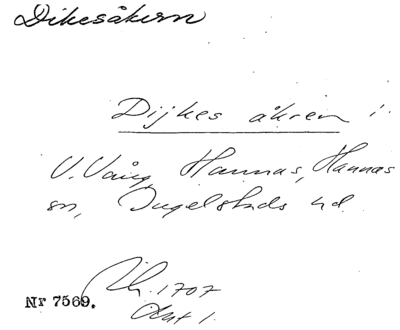 Dikesåkern
Dijkes åkren i
V. Vång, Hannas, Hannas
sn, Ingelstads hd.
1707
Akt 1.
Nr 7569.